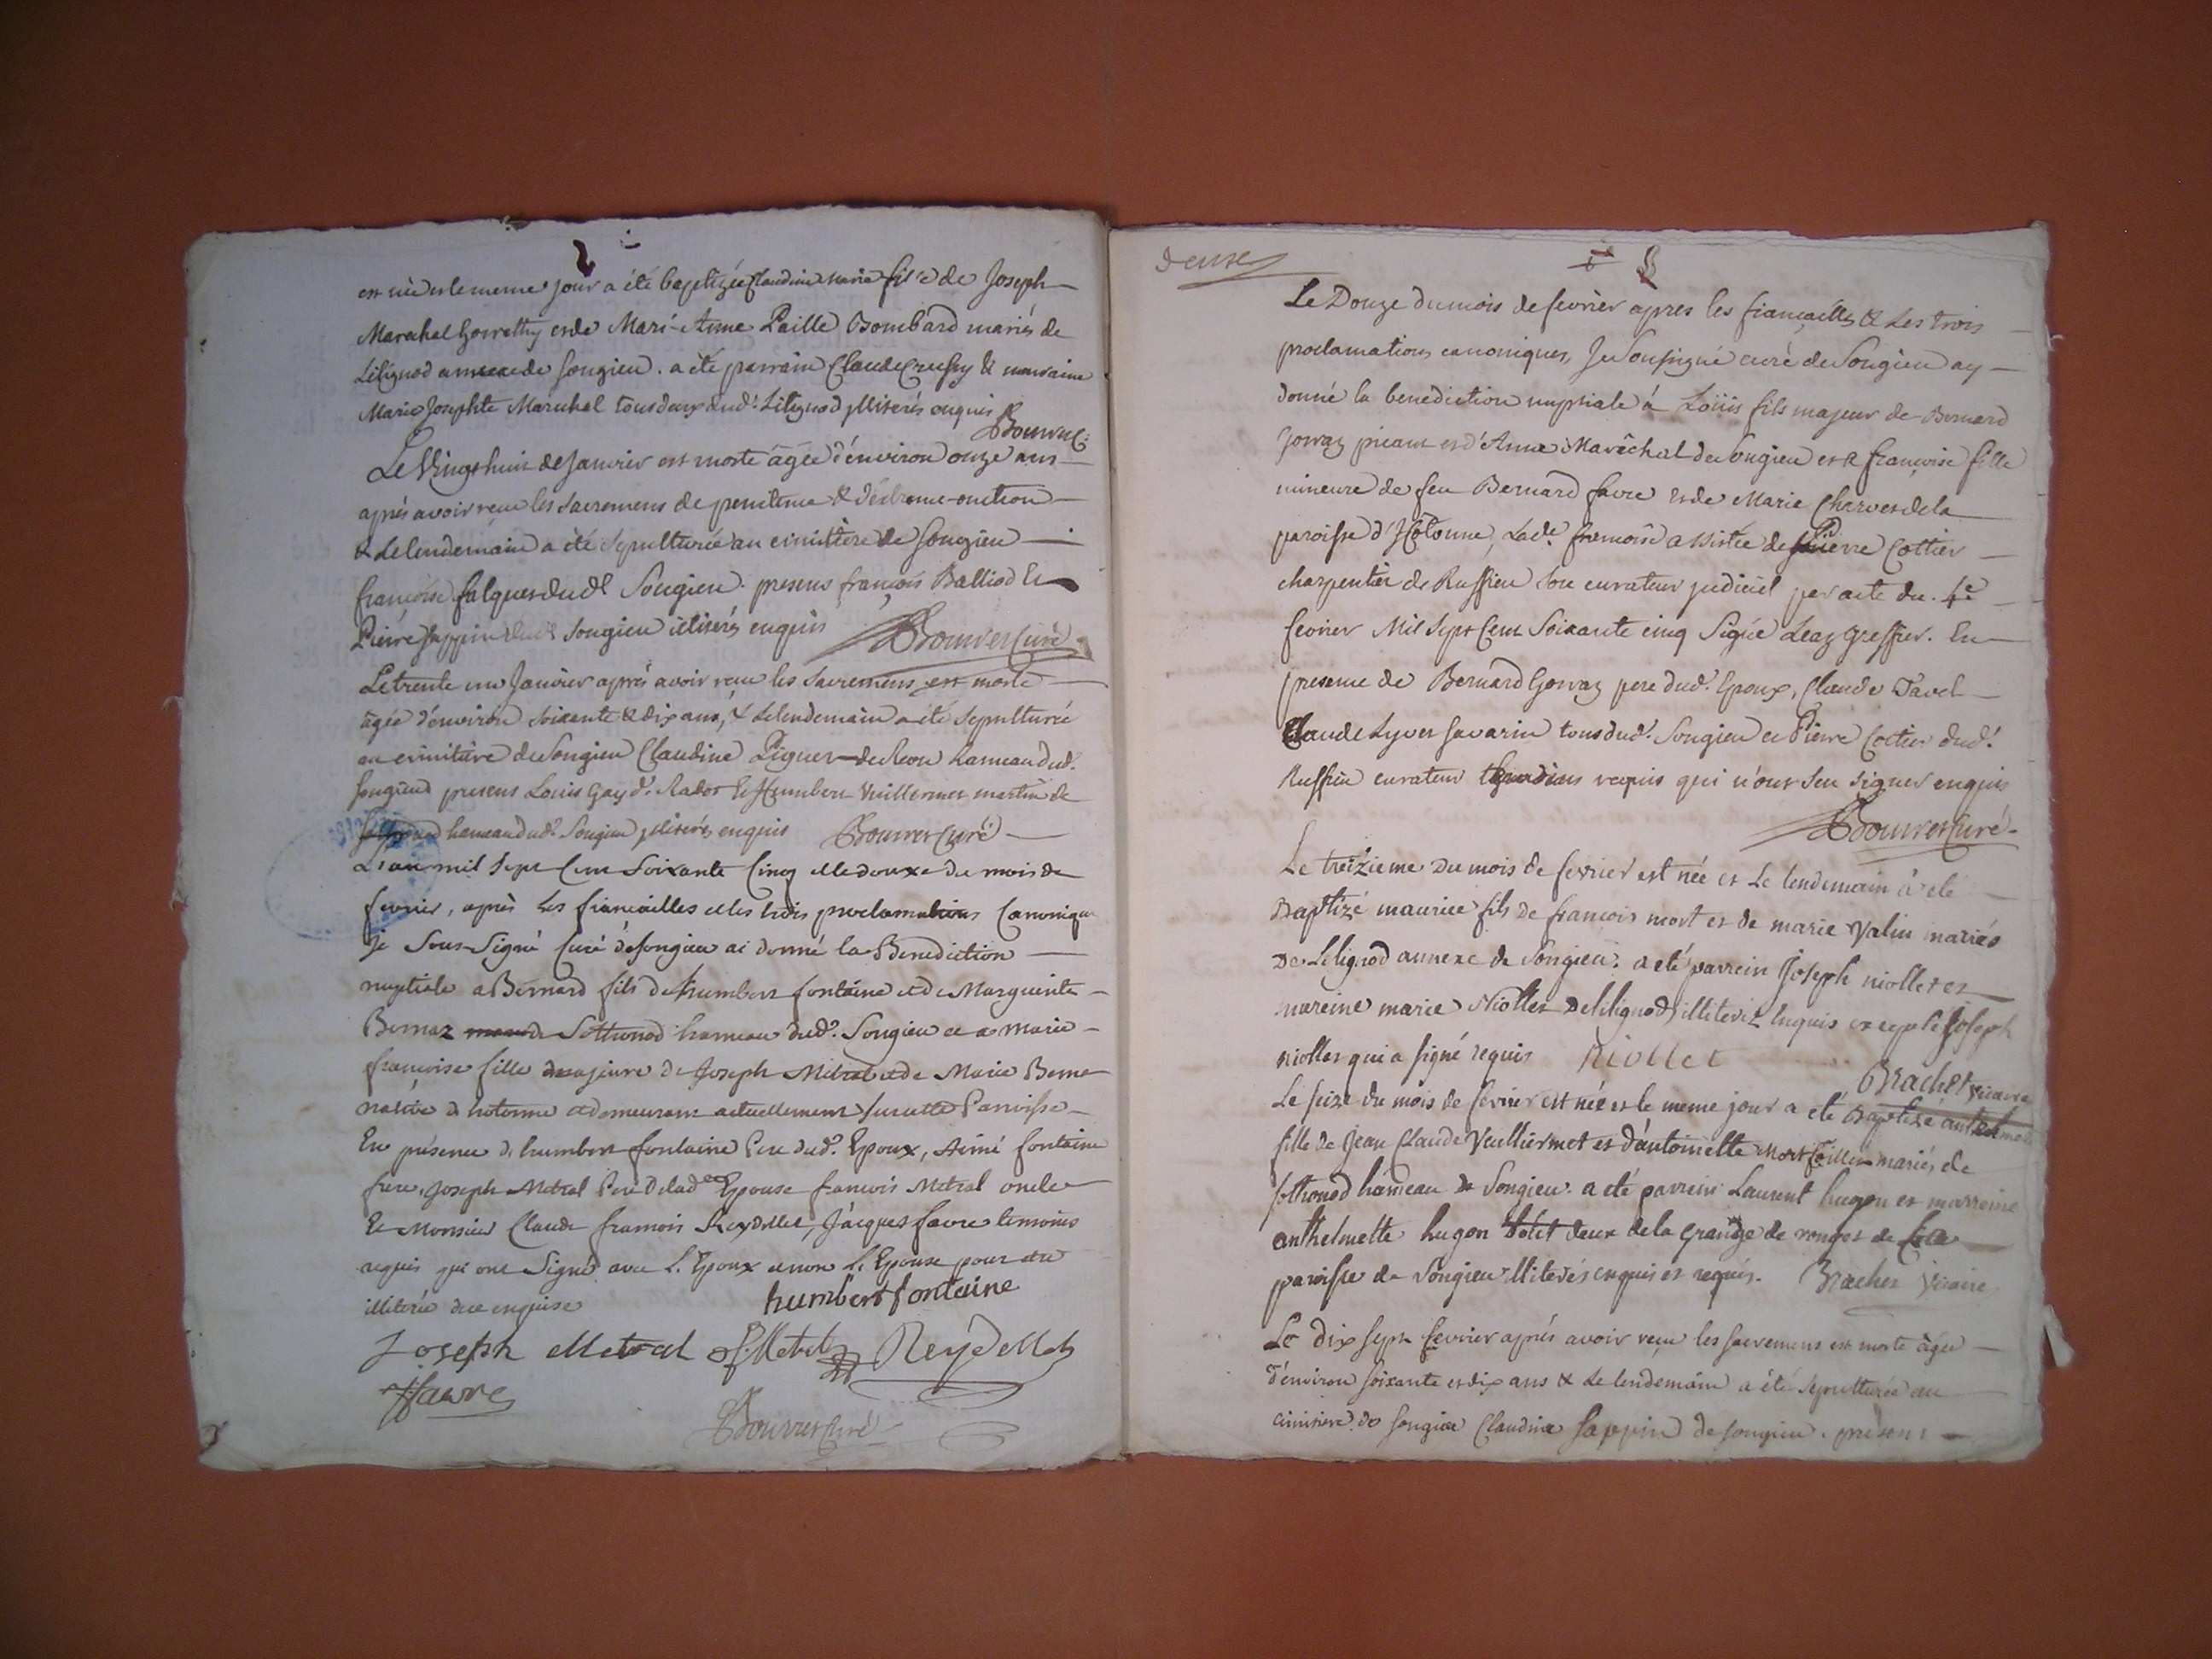 est née et le meme jour a été baptizée Claudine Marie fille de Joseph
Marechal Gorrethy et de Mari-Anne Paille Bombard mariés de
Lilignod annexe de Songieu. a été parrain Claude Crussy & marraine
Marie Josephte Maréchal tous deux dud. Lilignod illiterés enquis
Bouvret C.
Le Vingt huit de Janvier est morte âgée d'environ onze ans
après avoir reçu les sacremens de penitence & d'extreme-onction
& Le lendemain a été sepulturée au cimitière de Songieu
francoise falquet dudt Songieu. presens françois Balliod Et
Pierre Sappin dudt Songieu iliterés enquis Bouvret Curé
Le trente un Janvier après avoir reçu les sacremens est morte
âgée d'environ soixante & dix ans, & Le lendemain a été sepulturée
au cimitière de Songieu Claudine Piguet de hameau dud.
Songieu presens Louis Gay d. Rador & Humbert Vuillermet martin de
hameau dud. Songieu iliterés enquis Bouvret Curé
L'an mil sept Cent Soixante Cinq et le douxe du mois de
fevrier, après les fiancailles et les trois proclamations Canonique
Je Sous-Signé Curé de Songieu ai donné la Benediction
nuptiale a Bernard fils de humbert fontaine et de Marguerite
Bernaz de Sothonod hameau dud. Songieu et a Marie
francoise fille majeure de Joseph Métral et de Marie Berne
native d'hotonne et demeurant actuellement sur cette Paroisse
En présence d. humbert fontaine Pere dud. Epoux, Aimé fontaine
frere, Joseph Metral Pere de lad. Epouse francois Metral oncle
Et Monsieur Claude francois Reydellet, Jacques favre temoins
requis qui ont Signé avec L. Epoux et non L. Epouse pour etre
illiterée de ce enquise humbert fontaine
Joseph Metral f. Metral Reydellet
J favre
Bouvret Curé
douse
Le Douze du mois de fevrier apres les fiançailles & Les trois
proclamations canoniques, Je Soussigné curé de Songieu ay
donné la benediction nuptiale á Loüis fils majeur de Bernard
Gorraz picaut et d'Anne Marêchal de Songieu et a françoise fille
mineure de feu Bernard favre et de Marie Charvet de la
paroisse d'Hotonne, Lade. francoise assistée de Pierre Cottier
charpentier de Ruffieu son curateur judiciel par acte du. 4e
fevrier Mil Sept Cent Soixante cinq Signé Leaz greffier. En
presence de Bernard Gorraz pere dud. Epoux, Claude Tavel
Claude Lyvet Savarin tous dud. Songieu et Pierre Cottier dud.
Ruffieu curateur temoins requis qui n'ont seu signer enquis
Bouvret Curé
Le treizieme du mois de fevrier est née et Le lendemain à été
Baptizé maurice fils de francois mort et de marie Valin mariés
de Lilignod annexe de Songieu. a été parrein Joseph niollet et
mareine marie Niollet de lilignod illiteréz Enquis excepté Joseph
niollet qui a signé requis Niollet
Brachet vicaire
Le seize du mois de fevrier est née et le meme jour a été Baptizé
fille de Jean Claude Vuilliermet et d'antoinette mariés de
sothonod hámeau de Songieu. a été parrein Laurent hugon et marreine
anthelmette hugon deux de la grange de rouget de
paroisse de Songieu illiterés enquis et requis. Brachet Vicaire
Le dix sept fevrier après avoir reçu les sacremens est morte âgée
d'environ soixante et dix ans & Le lendemain a été sepulturée au
cimitiere de Songieu Claudine Sappin de Songieu. présens